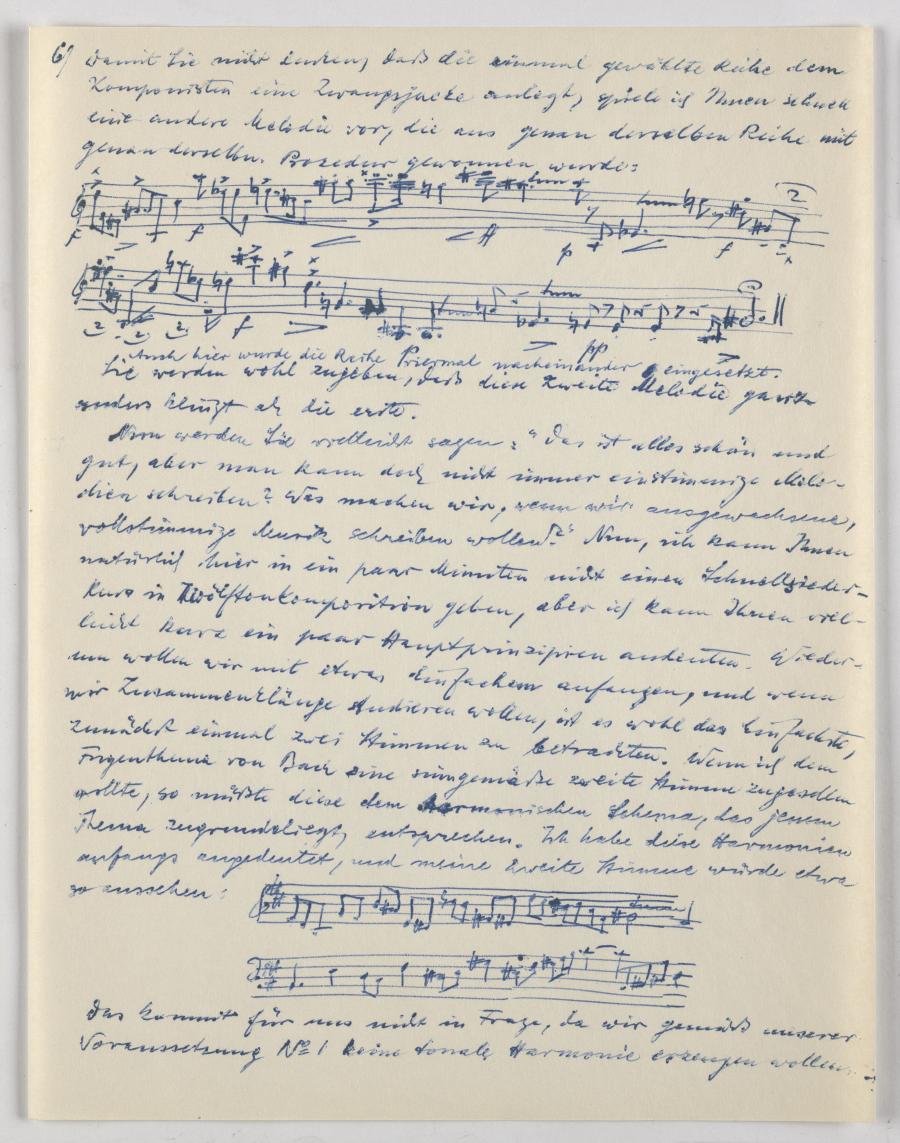 6)
Damit Sie nicht denken, daß die einmal gewählte Reihe dem
Komponisten eine Zwangsjacke anlegt, spiele ich Ihnen schnell
eine andere Melodie vor, die aus genau derselben Reihe mit
genau derselben Prozedur gewonnen wurde:
2
f f ff p f
2 2 2 f pp
Auch hier wurde die Reihe nacheinander eingesetzt.
Sie werden wohl zugeben, daß diese zweite Melodie ganz
anders klingt als die erste.
Nun werden Sie vielleicht sagen: "Das ist alles schön und
gut, aber man kann doch nicht immer einstimmige Melo-
dien schreiben? Was machen wir, wenn wir ausgewachsene,
vollstimmige Musik schreiben wollen?" Nun, ich kann Ihnen
natürlich hier in ein paar Minuten nicht einen Schnellsieder-
kurs in Zwölftonkomposition geben, aber ich kann Ihnen viel-
leicht kurz ein paar Hauptprinzipien andeuten. Wieder-
um wollen wir mit etwas Einfachem anfangen, und wenn
wir Zusammenklänge studieren wollen, ist es wohl das Einfachste,
zunächst einmal zwei Stimmen zu betrachten. Wenn ich dem
Fugenthema von Bach eine sinngemäße zweite Stimme zugesellen
wollte, so müßte diese dem harmonischen Schema, das jenem
Thema zugrundeliegt, entsprechen. Ich habe diese Harmonien
anfangs angedeutet, und meine zweite Stimme würde etwa
so aussehen:
Das kommt für uns nicht in Frage, da wir gemäß unserer
Voraussetzung No 1 keine tonale Harmonie erzeugen wollen.